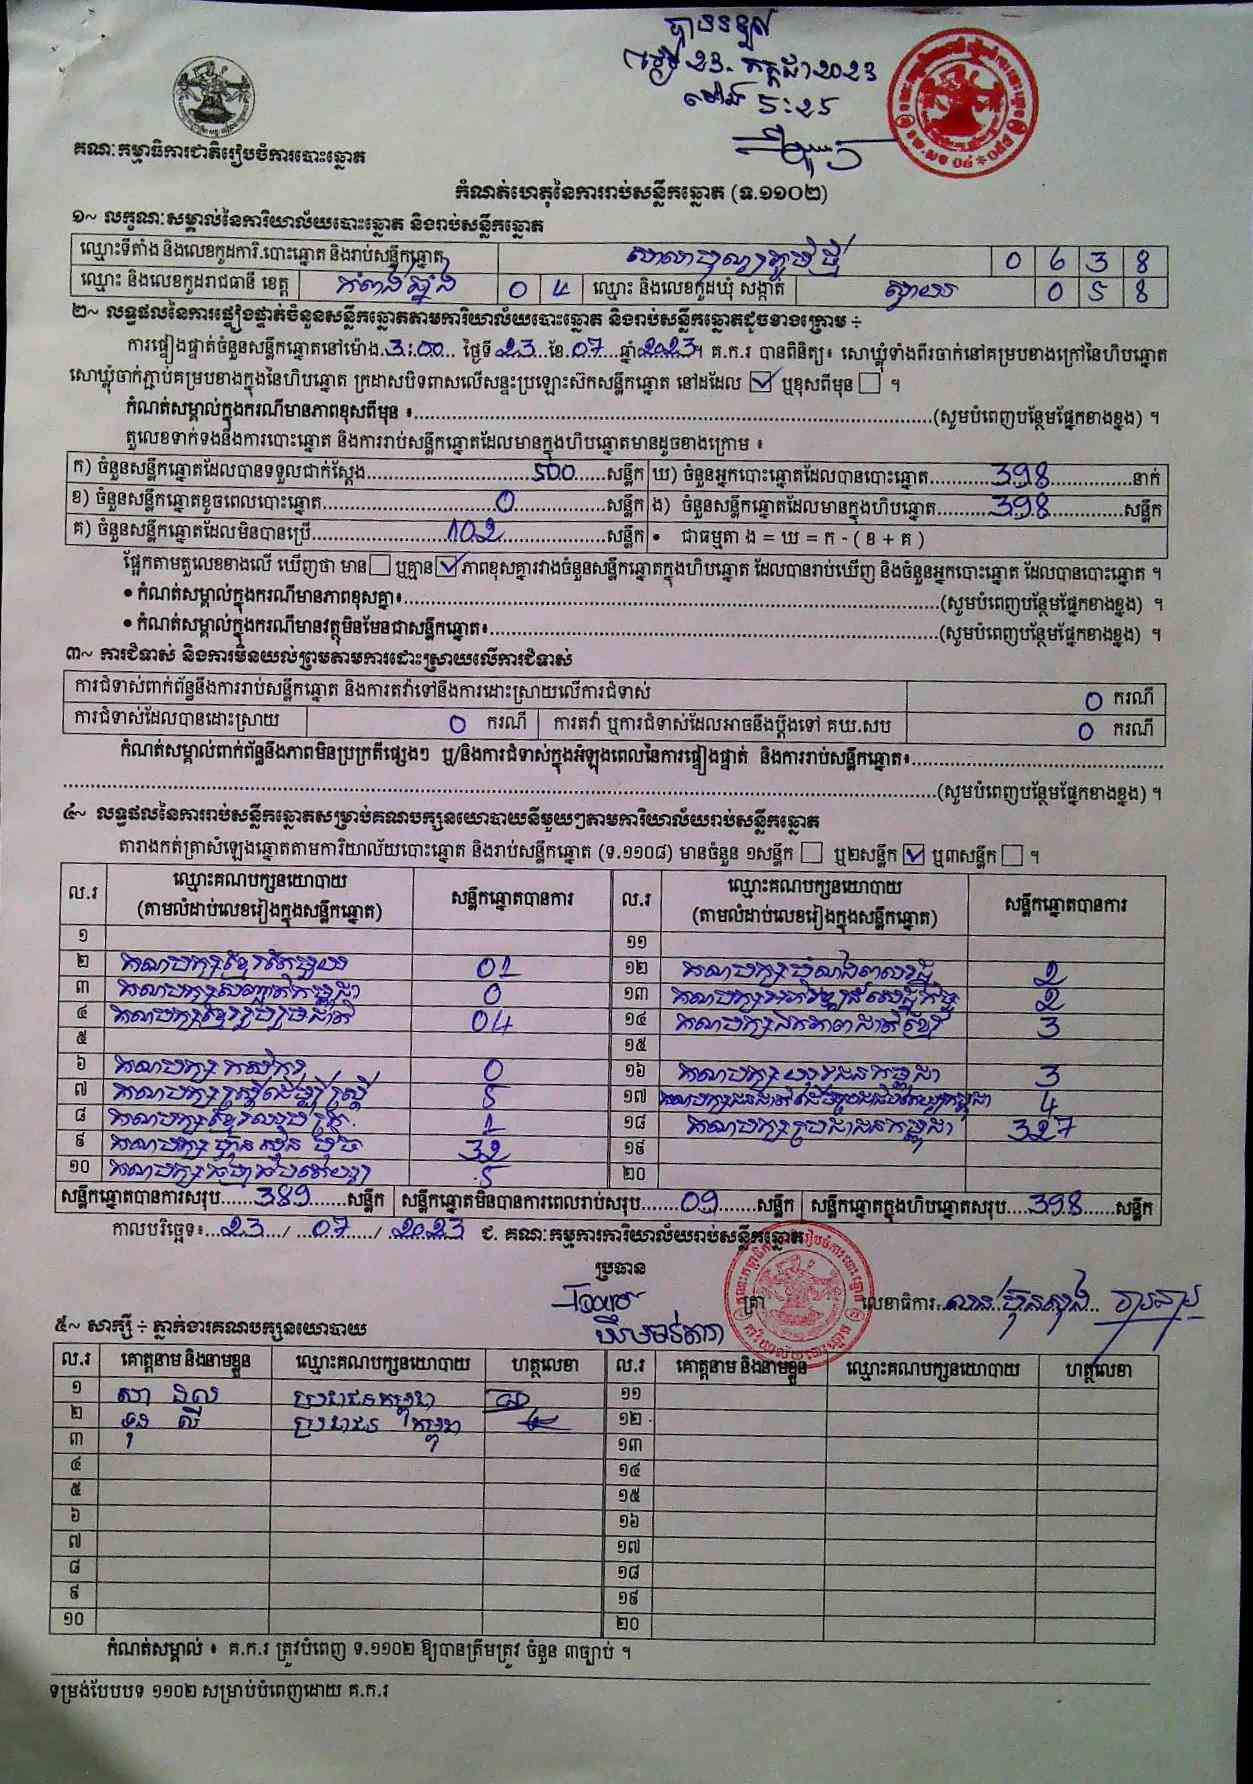 ថ្ងៃទី 23. កក្កដា 2023
ម៉ោង 5:25
គណៈកម្មាធិការជាតិរៀបចំការបោះឆ្នោត
កំណត់ហេតុនៃការរាប់សន្លឹកឆ្នោត (ទ.១១០២)
១~ លក្ខណៈសម្គាល់នៃការិយាល័យបោះឆ្នោត និងរាប់សន្លឹកឆ្នោត
ឈ្មោះទីតាំង និងលេខកូដការិ.បោះឆ្នោត និងរាប់សន្លឹកឆ្នោត សាលាបុណ្យភូមិថ្មី 0 6 3 8
ឈ្មោះ និងលេខកូដរាជធានី ខេត្ត កំពង់ឆ្នាំង 0 4 ឈ្មោះ និងលេខកូដឃុំ សង្កាត់ ស្វាយ 0 5 8
២~ លទ្ធផលនៃការផ្ទៀងផ្ទាត់ចំនួនសន្លឹកឆ្នោតតាមការិយាល័យបោះឆ្នោត និងរាប់សន្លឹកឆ្នោតដូចខាងក្រោម ÷
ការផ្ទៀងផ្ទាត់ចំនួនសន្លឹកឆ្នោតនៅម៉ោង.3:00... ថ្ងៃទី 23...ខែ.07...ឆ្នាំ2023។ គ.ក.រ បានពិនិត្យ៖ សោឃ្លុំទាំងពីរចាក់នៅគម្របខាងក្រៅនៃហិបឆ្នោត
សោឃ្លុំចាក់ភ្ជាប់គម្របខាងក្នុងនៃហិបឆ្នោត ក្រដាសបិទពាសលើសន្ទះប្រឡោះស៊កសន្លឹកឆ្នោត នៅដដែល ☑ ឬខុសពីមុន ☐ ។
កំណត់សម្គាល់ក្នុងករណីមានភាពខុសពីមុន ៖......(សូមបំពេញបន្ថែមផ្នែកខាងខ្នង) ។
តួលេខទាក់ទងនឹងការបោះឆ្នោត និងការរាប់សន្លឹកឆ្នោតដែលមានក្នុងហិបឆ្នោតមានដូចខាងក្រោម ៖
ក) ចំនួនសន្លឹកឆ្នោតដែលបានទទួលជាក់ស្តែង......500......សន្លឹក ឃ) ចំនួនអ្នកបោះឆ្នោតដែលបានបោះឆ្នោត......398......នាក់
ខ) ចំនួនសន្លឹកឆ្នោតខូចពេលបោះឆ្នោត......0......សន្លឹក ង) ចំនួនសន្លឹកឆ្នោតដែលមានក្នុងហិបឆ្នោត......398......សន្លឹក
គ) ចំនួនសន្លឹកឆ្នោតដែលមិនបានប្រើ......102......សន្លឹក • ជាធម្មតា ង = ឃ = ក - ( ខ + គ )
ផ្អែកតាមតួលេខខាងលើ ឃើញថា មាន ☐ ឬគ្មាន ☑ ភាពខុសគ្នារវាងចំនួនសន្លឹកឆ្នោតក្នុងហិបឆ្នោត ដែលបានរាប់ឃើញ និងចំនួនអ្នកបោះឆ្នោត ដែលបានបោះឆ្នោត ។
• កំណត់សម្គាល់ក្នុងករណីមានភាពខុសគ្នា៖......(សូមបំពេញបន្ថែមផ្នែកខាងខ្នង) ។
• កំណត់សម្គាល់ក្នុងករណីមានវត្ថុមិនមែនជាសន្លឹកឆ្នោត៖......(សូមបំពេញបន្ថែមផ្នែកខាងខ្នង) ។
៣~ ការជំទាស់ និងការមិនយល់ព្រមតាមការដោះស្រាយលើការជំទាស់
ការជំទាស់ពាក់ព័ន្ធនឹងការរាប់សន្លឹកឆ្នោត និងការតវ៉ាទៅនឹងការដោះស្រាយលើការជំទាស់ 0 ករណី
ការជំទាស់ដែលបានដោះស្រាយ 0 ករណី ការតវ៉ា ឬការជំទាស់ដែលអាចនឹងប្តឹងទៅ គឃ.សប 0 ករណី
កំណត់សម្គាល់ពាក់ព័ន្ធនឹងភាពមិនប្រក្រតីផ្សេងៗ ឬ/និងការជំទាស់ក្នុងអំឡុងពេលនៃការផ្ទៀងផ្ទាត់ និងការរាប់សន្លឹកឆ្នោត៖......
......(សូមបំពេញបន្ថែមផ្នែកខាងខ្នង) ។
៤~ លទ្ធផលនៃការរាប់សន្លឹកឆ្នោតសម្រាប់គណបក្សនយោបាយនីមួយៗតាមការិយាល័យរាប់សន្លឹកឆ្នោត
តារាងកត់ត្រាសំឡេងឆ្នោតតាមការិយាល័យបោះឆ្នោត និងរាប់សន្លឹកឆ្នោត (ទ.១១០៨) មានចំនួន ១សន្លឹក ☐ ឬ២សន្លឹក ☑ ឬ៣សន្លឹក ☐ ។
ល.រ ឈ្មោះគណបក្សនយោបាយ (តាមលំដាប់លេខរៀងក្នុងសន្លឹកឆ្នោត) សន្លឹកឆ្នោតបានការ ល.រ ឈ្មោះគណបក្សនយោបាយ (តាមលំដាប់លេខរៀងក្នុងសន្លឹកឆ្នោត) សន្លឹកឆ្នោតបានការ
១ ១១
២ គណបក្សខ្មែរតែមួយ 01 ១២ គណបក្សឃ្មុំ 2
៣ គណបក្សសញ្ជាតិកម្ពុជា 0 ១៣ គណបក្ស 2
៤ គណបក្សខ្មែររួបរួមជាតិ 04 ១៤ គណបក្សឯកភាពជាតិខ្មែរ 3
៥ ១៥
៦ គណបក្សកសិករ 0 ១៦ គណបក្សយុវជនកម្ពុជា 3
៧ គណបក្សស្ត្រីដើម្បីស្ត្រី 5 ១៧ គណបក្ស 4
៨ គណបក្សខ្មែរ 1 ១៨ គណបក្សប្រជាជនកម្ពុជា 327
៩ គណបក្សហ្វ៊ុនស៊ិនប៉ិច 32 ១៩
១០ គណបក្ស 5 ២០
សន្លឹកឆ្នោតបានការសរុប......389......សន្លឹក សន្លឹកឆ្នោតមិនបានការពេលរាប់សរុប......09......សន្លឹក សន្លឹកឆ្នោតក្នុងហិបឆ្នោតសរុប....398......សន្លឹក
កាលបរិច្ឆេទ៖...23.../...07....../.2023 ជ. គណៈកម្មការការិយាល័យរាប់សន្លឹកឆ្នោត
ប្រធាន
ត្រា លេខាធិការ
៥~ សាក្សី ÷ ភ្នាក់ងារគណបក្សនយោបាយ
ល.រ គោត្តនាម និងនាមខ្លួន ឈ្មោះគណបក្សនយោបាយ ហត្ថលេខា ល.រ គោត្តនាម និងនាមខ្លួន ឈ្មោះគណបក្សនយោបាយ ហត្ថលេខា
១ ប្រជាជនកម្ពុជា ១១
២ ប្រជាជន កម្ពុជា ១២
៣ ១៣
៤ ១៤
៥ ១៥
៦ ១៦
៧ ១៧
៨ ១៨
៩ ១៩
១០ ២០
កំណត់សម្គាល់ ៖ គ.ក.រ ត្រូវបំពេញ ទ.១១០២ ឱ្យបានត្រឹមត្រូវ ចំនួន ៣ច្បាប់ ។
ទម្រង់បែបបទ ១១០២ សម្រាប់បំពេញដោយ គ.ក.រ